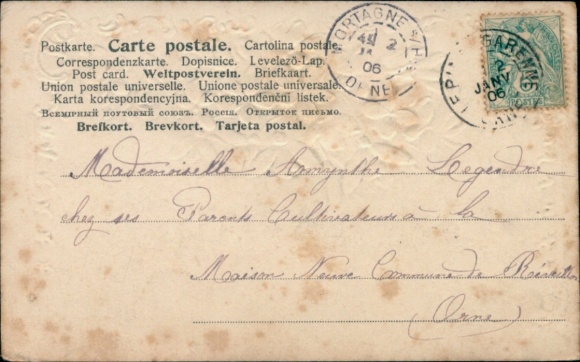 Postkarte. Carte postale. Cartolina postale.
Correspondenzkarte. Dopisnice. Levelező-Lap.
Post card. Weltpostverein. Briefkaart.
Union postale universelle. Unione postale universale.
Karta korespondencyjna. Korespondenční lístek.
Всемірный почтовый союзъ. Россія. Открытое письмо.
Brefkort. Brevkort. Tarjeta postal.
MORTAGNE
2
06
ORNE
GARENNE
2
JANV
06
POSTES
Mademoiselle Legendre
chez ses Parents Cultivateurs à la
Maison Neuve Commune de
(Orne)